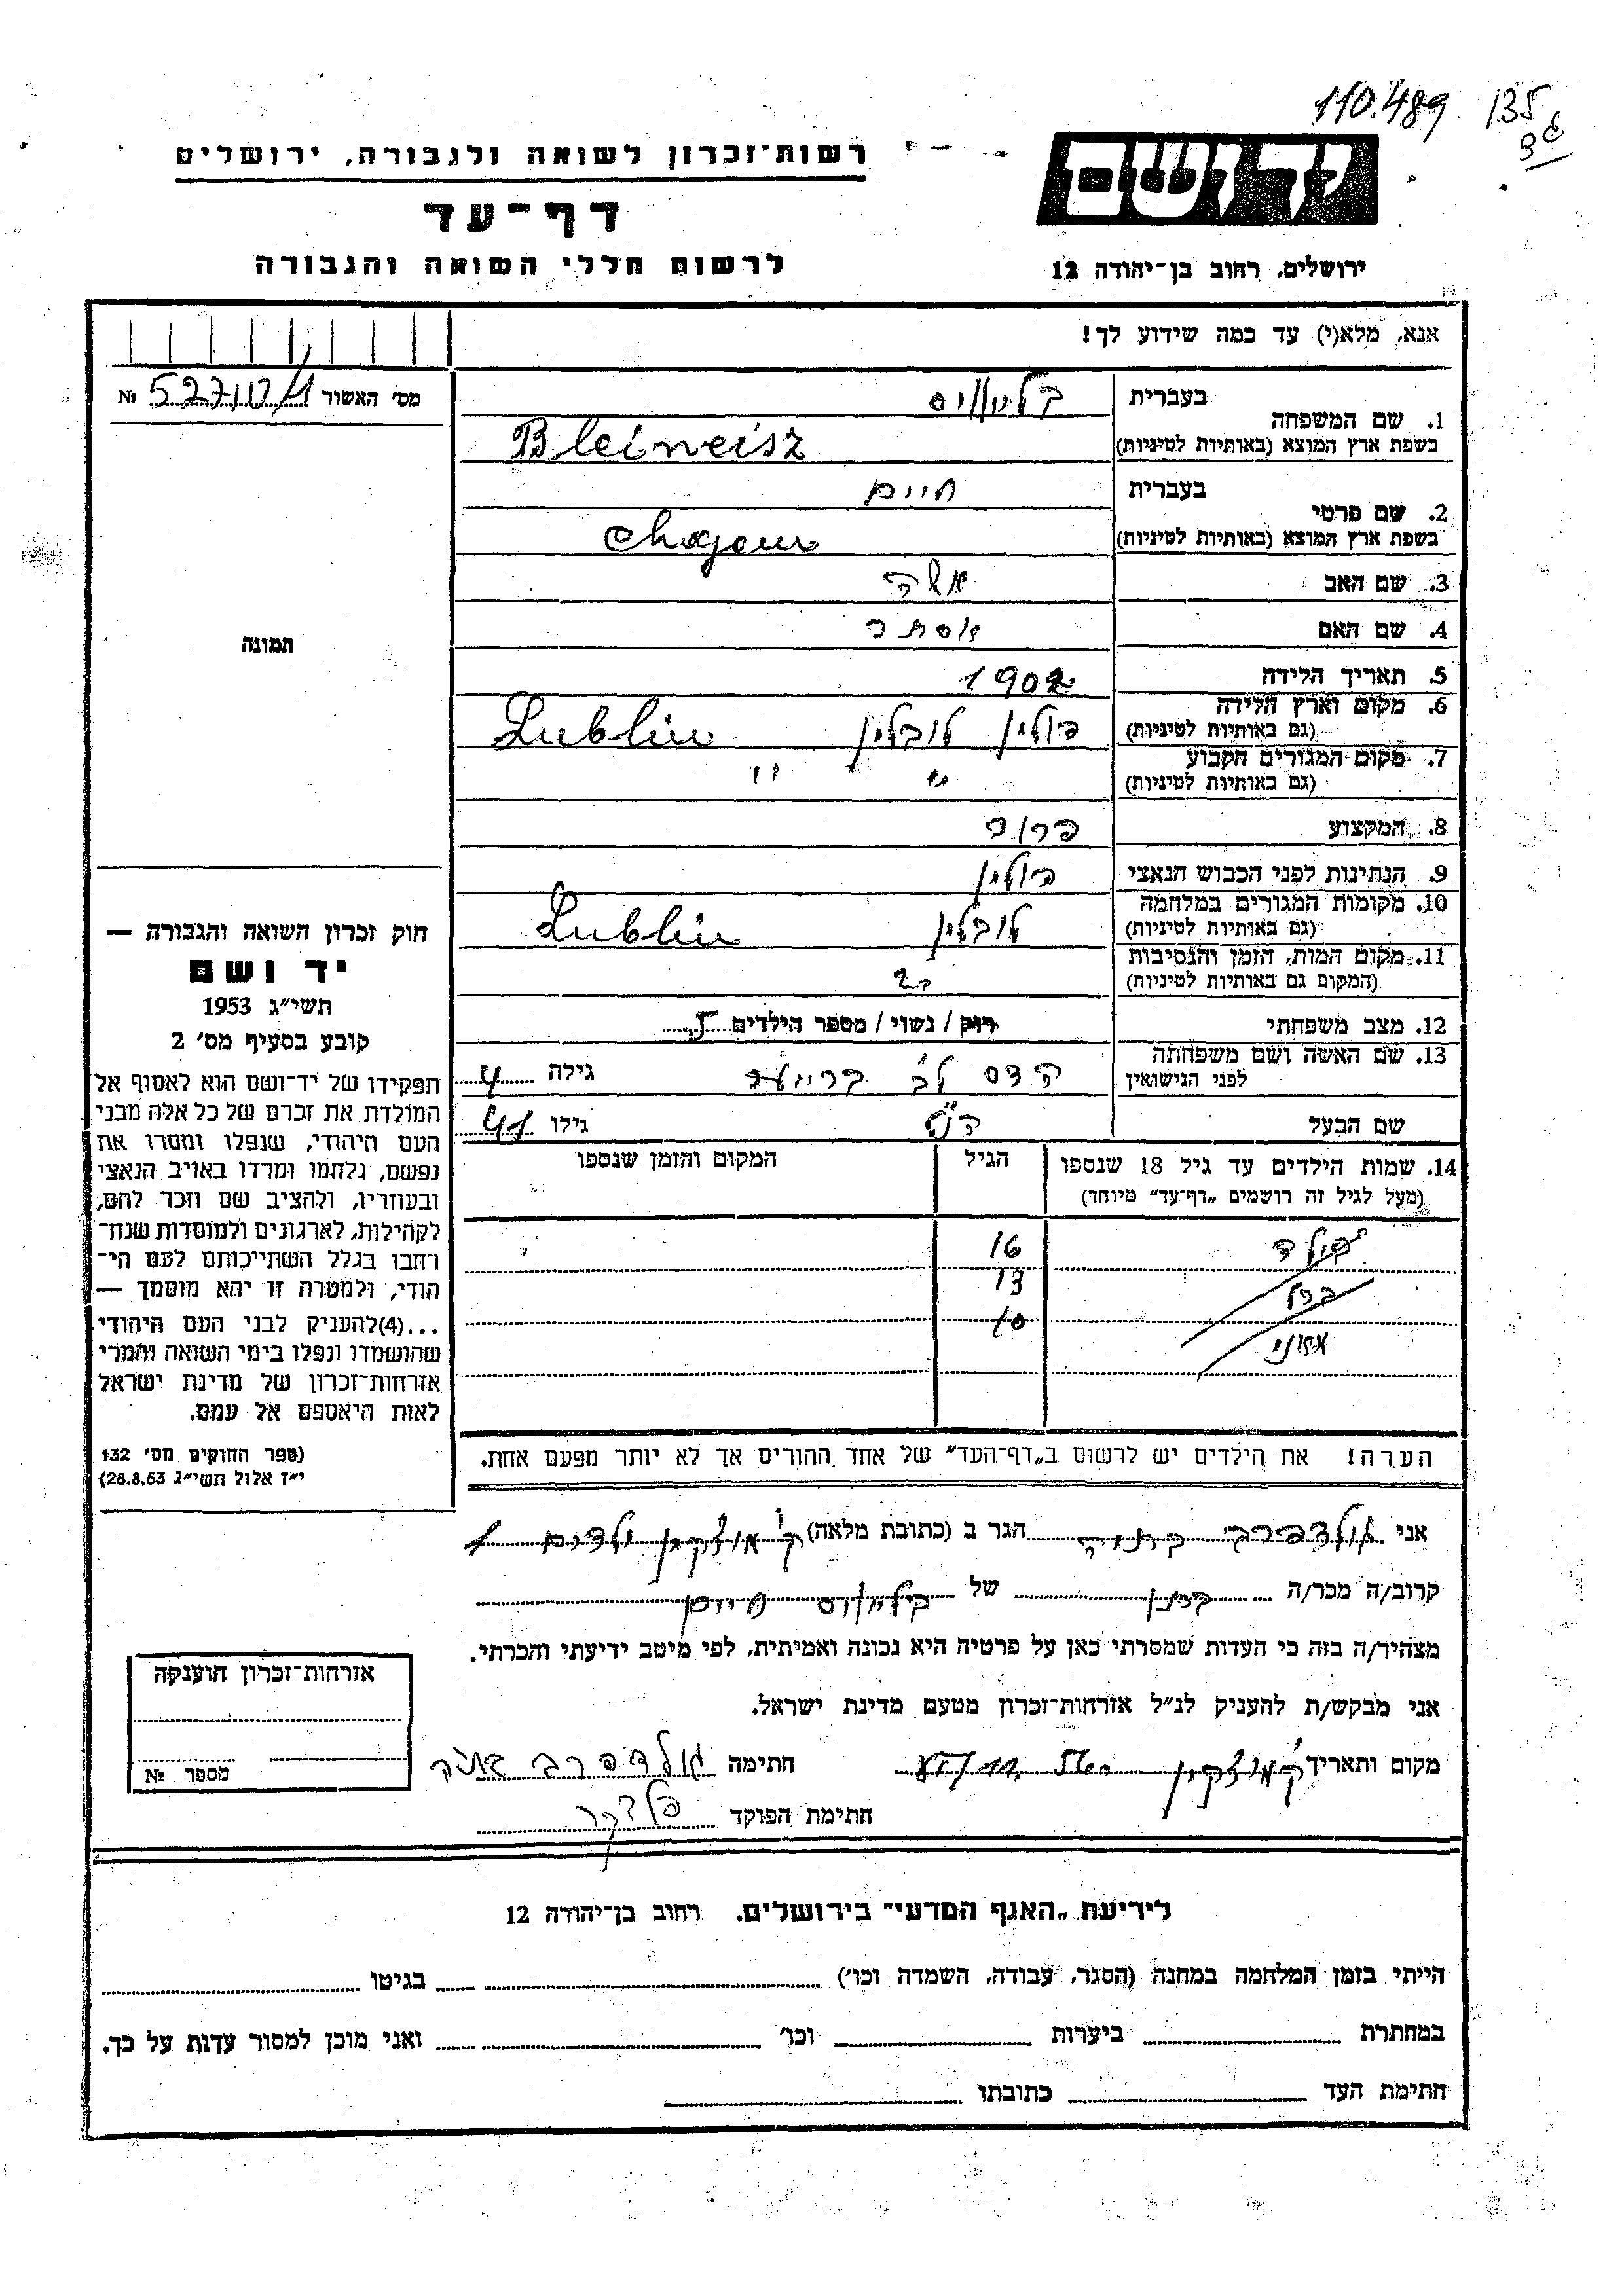 110.489 135
רשות־זכרון לשואה ולגבורה, ירושלים
יד ושם
דף־עד
לרשום חללי השואה והגבורה
ירושלים, רחוב בן־יהודה 12
אנא, מלא(י) עד כמה שידוע לך!
מס׳ האשור №
1. שם המשפחה בעברית
בשפת ארץ המוצא (באותיות לטיניות) Bleiweisz
2. שם פרטי בעברית חיים
בשפת ארץ המוצא (באותיות לטיניות)
3. שם האב
4. שם האם אסתר
5. תאריך הלידה 1902
6. מקום וארץ הלידה
(גם באותיות לטיניות) פולין לובלין Lublin
7. מקום המגורים הקבוע
(גם באותיות לטיניות) " "
8. המקצוע
9. הנתינות לפני הכבוש הנאצי פולין
10. מקומות המגורים במלחמה
(גם באותיות לטיניות) לובלין Lublin
11. מקום המות, הזמן והנסיבות
(המקום גם באותיות לטיניות)
12. מצב משפחתי רוק / נשוי / מספר הילדים
13. שם האשה ושם משפחתה
לפני הנישואין הדס גילה
שם הבעל הנ"ל גילו 41
14. שמות הילדים עד גיל 18 שנספו הגיל המקום והזמן שנספו
(מעל לגיל זה רושמים „דף־עד״ מיוחד)
16
13
10
הערה! את הילדים יש לרשום ב„דף־העד״ של אחד ההורים אך לא יותר מפעם אחת.
תמונה
חוק זכרון השואה והגבורה —
יד ושם
תשי״ג 1953
קובע בסעיף מס׳ 2
תפקידו של יד־ושם הוא לאסוף אל
המולדת את זכרם של כל אלה מבני
העם היהודי, שנפלו ומסרו את
נפשם, נלחמו ומרדו באויב הנאצי
ובעוזריו, ולהציב שם וזכר להם,
לקהילות, לארגונים ולמוסדות שנח־
רחבו בגלל השתייכותם לעם הי־
הודי, ולמטרה זו יהא מוסמך —
...(4) להעניק לבני העם היהודי
שהושמדו ונפלו בימי השואה והמרי
אזרחות־זכרון של מדינת ישראל
לאות היאספם אל עמם.
(ספר החוקים מס׳ 132
י״ז אלול תשי״ג 28.8.53)
אני גולדפרב הגר ב (כתובת מלאה)
קרוב/ה מכר/ה של חיים
מצהיר/ה בזה כי העדות שמסרתי כאן על פרטיה היא נכונה ואמיתית, לפי מיטב ידיעתי והכרתי.
אני מבקש/ת להעניק לנ״ל אזרחות־זכרון מטעם מדינת ישראל.
מקום ותאריך חתימה גולדפרב
חתימת הפוקד
אזרחות־זכרון הוענקה
מספר №
לידיעת „האגף המדעי״ בירושלים, רחוב בן־יהודה 12
הייתי בזמן המלחמה במחנה (הסגר, עבודה, השמדה וכו׳) בגיטו
במחתרת ביערות וכו׳ ואני מוכן למסור עדות על כך.
חתימת העד כתובתו